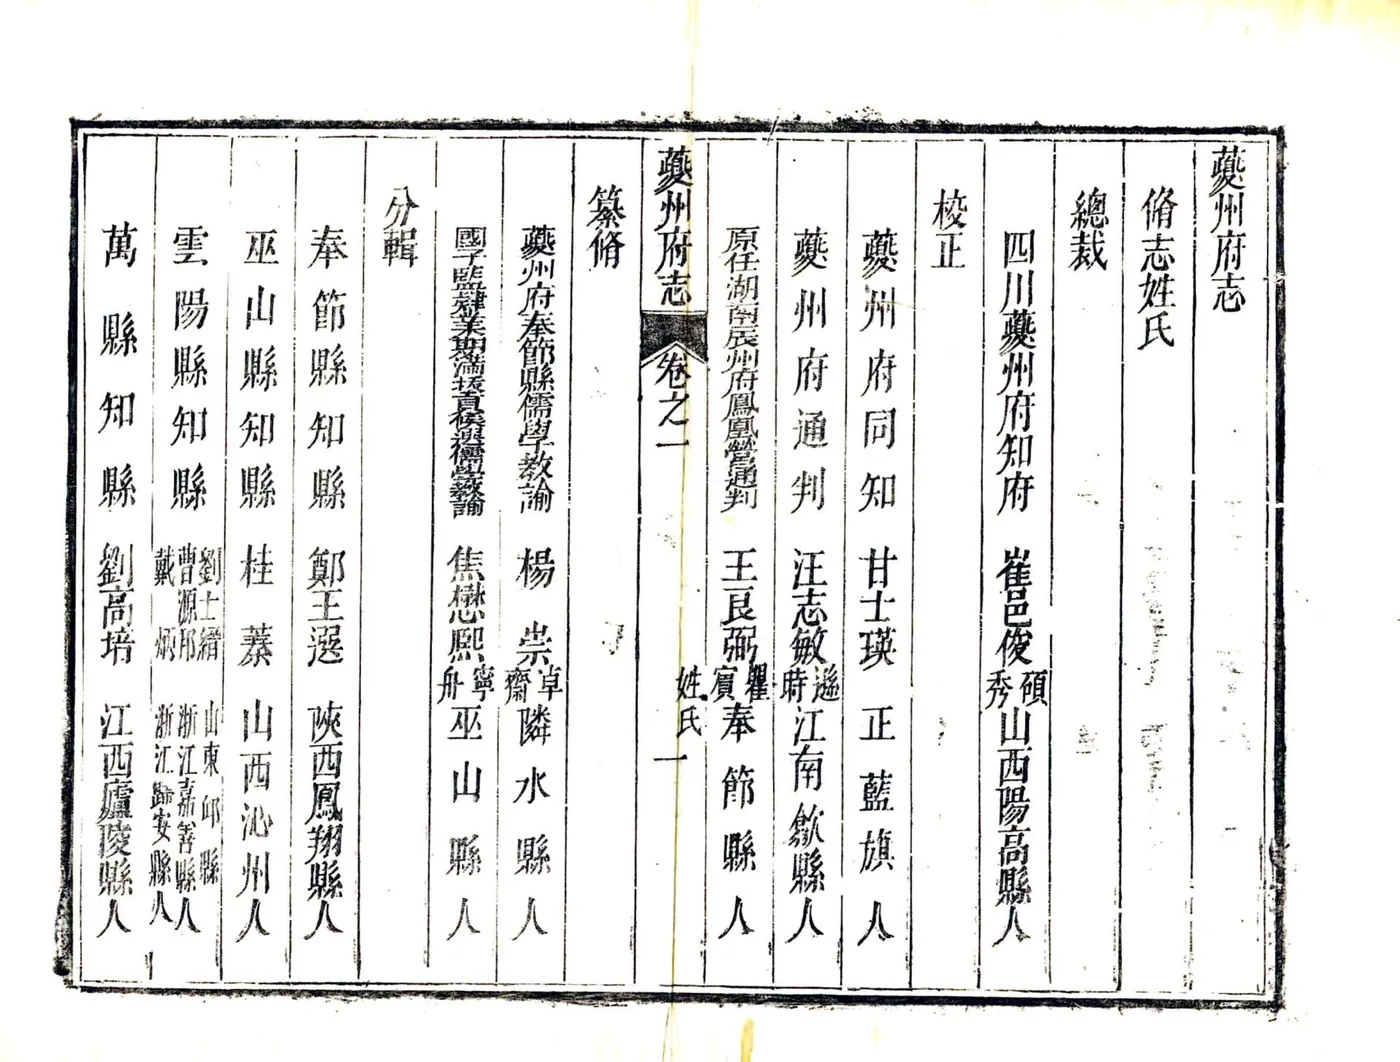 夔州府志
脩志姓氏
總裁
四川夔州府知府 崔邑俊碩秀山西陽高縣人
校正
夔州府同知 甘士瑛 正藍旗人
夔州府通判 汪志敏遜時江南歙縣人
原任湖南辰州府鳳凰營通判 王良弼賓奉節縣人
夔州府志 卷之一 姓氏 一
纂脩
夔州府奉節縣儒學教諭 楊崇卓齋隣水縣人
國子監肄業期滿拔貢候選儒學教諭 焦懋熙寧舟巫山縣人
分輯
奉節縣知縣 鄭王選 陝西鳳翔縣人
巫山縣知縣 桂蓁 山西沁州人
雲陽縣知縣 劉士縉 山東邱縣
曹源邦 浙江嘉善縣人
戴炳 浙江歸安縣人
萬縣知縣 劉高培 江西廬陵縣人